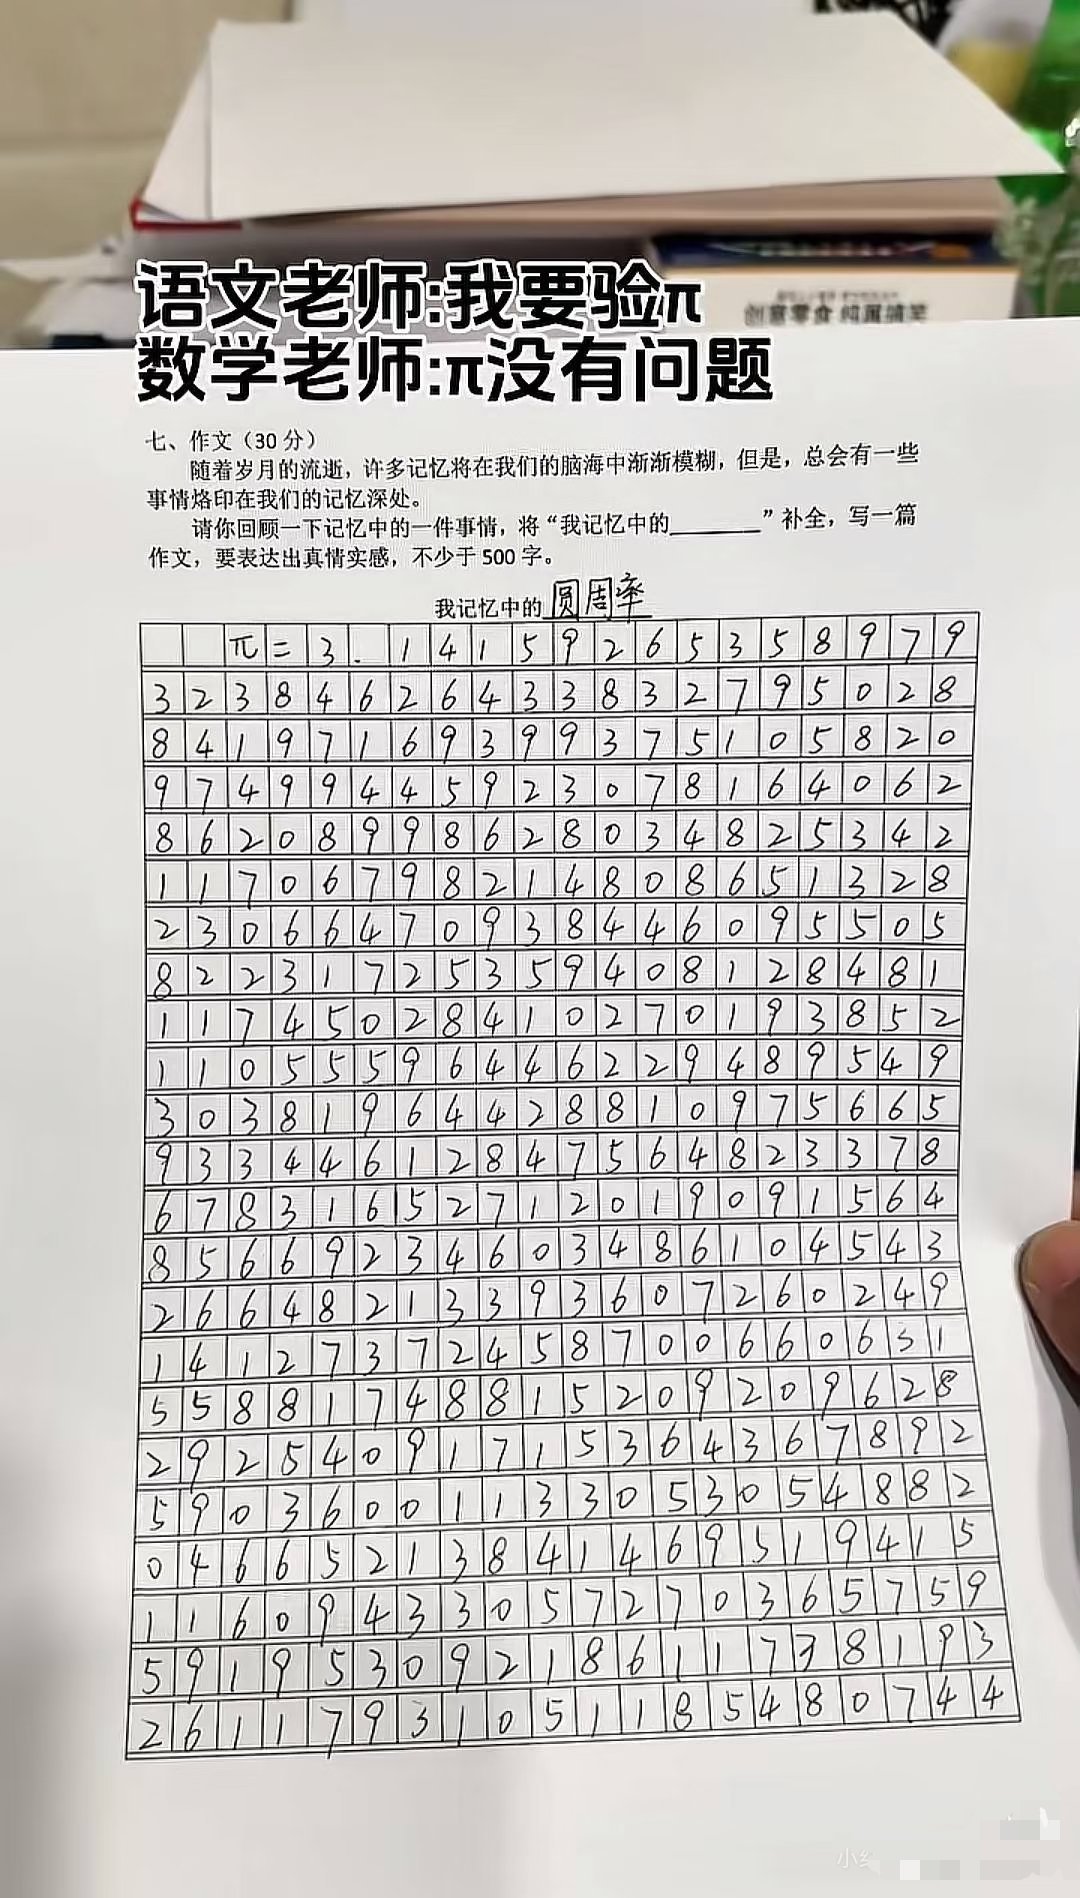 创意零食 纯属搞笑
语文老师:我要验π
数学老师:π没有问题
七、作文（30 分）
随着岁月的流逝，许多记忆将在我们的脑海中渐渐模糊，但是，总会有一些
事情烙印在我们的记忆深处。
请你回顾一下记忆中的一件事情，将“我记忆中的________”补全，写一篇
作文，要表达出真情实感，不少于 500 字。
我记忆中的圆周率
π=3.14159265358979
32384626433832795028
84197169399375105820
97499445923078164062
86208998628034825342
11706798214808651328
23066470938446095505
82231725359408128481
11745028410270193852
11055596446229489549
30381964428810975665
93344612847564823378
67831652712019091564
85669234603486104543
26648213393607260249
14127372458700660631
55881748815209209628
29254091715364367892
59036001133053054882
04665213841469519415
11609433057270365759
59195309218611738193
26117931051185480744
小红